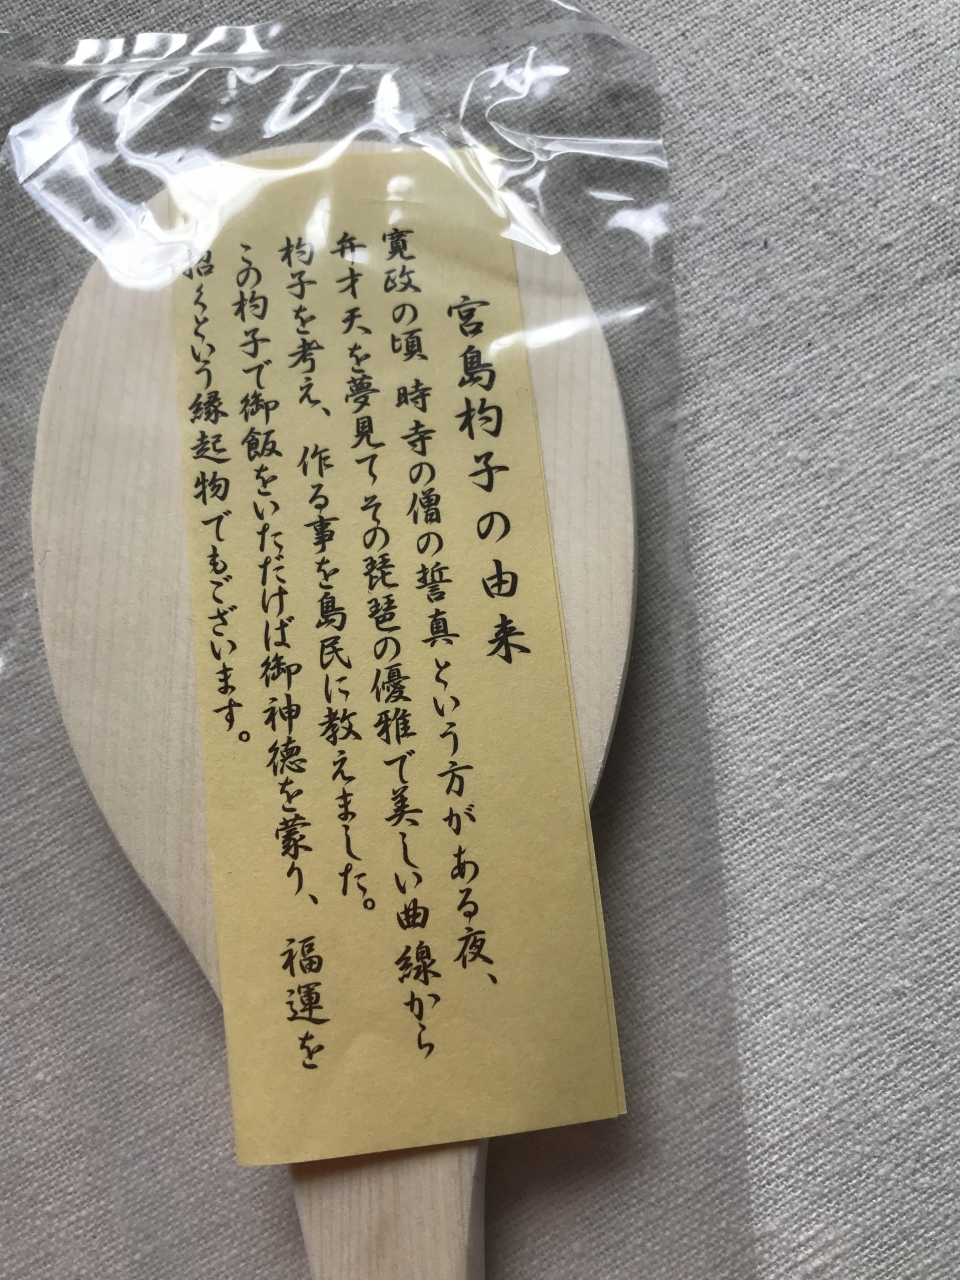 宮島杓子の由来
寛政の頃 時寺の僧の誓真という方がある夜、
弁才天を夢見てその琵琶の優雅で美しい曲線から
杓子を考え、作る事を島民に教えました。
この杓子で御飯をいただけば御神徳を蒙り、福運を
招くという縁起物でもございます。